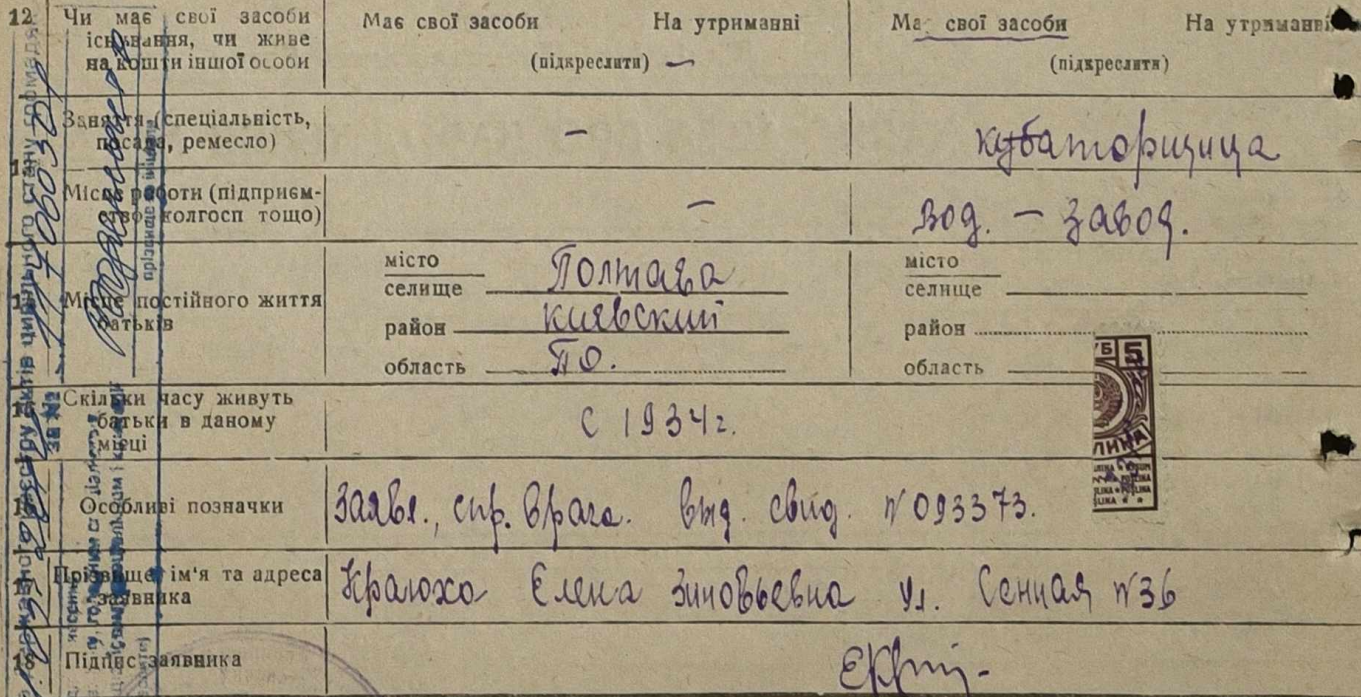 12 Чи має свої засоби
існування, чи живе
на кошти іншої особи
Має свої засоби На утриманні
(підкреслити) —
Має свої засоби На утриманні
(підкреслити)
Заняття (спеціальність,
посада, ремесло)
—
кубаторщица
Місце роботи (підприєм-
ство, колгосп тощо)
—
вод. — завод.
Місце постійного життя
батьків
місто
селище Полтава
район киевский
область ПО.
місто
селище
район
область
Скільки часу живуть
батьки в даному
місці
С 1934 г.
Особливі позначки
Заявл., спр. врача. выд. свид. №093373.
Прізвище, ім'я та адреса
заявника
Елена Зиновьевна ул. Сенная №36
18 Підпис заявника
5